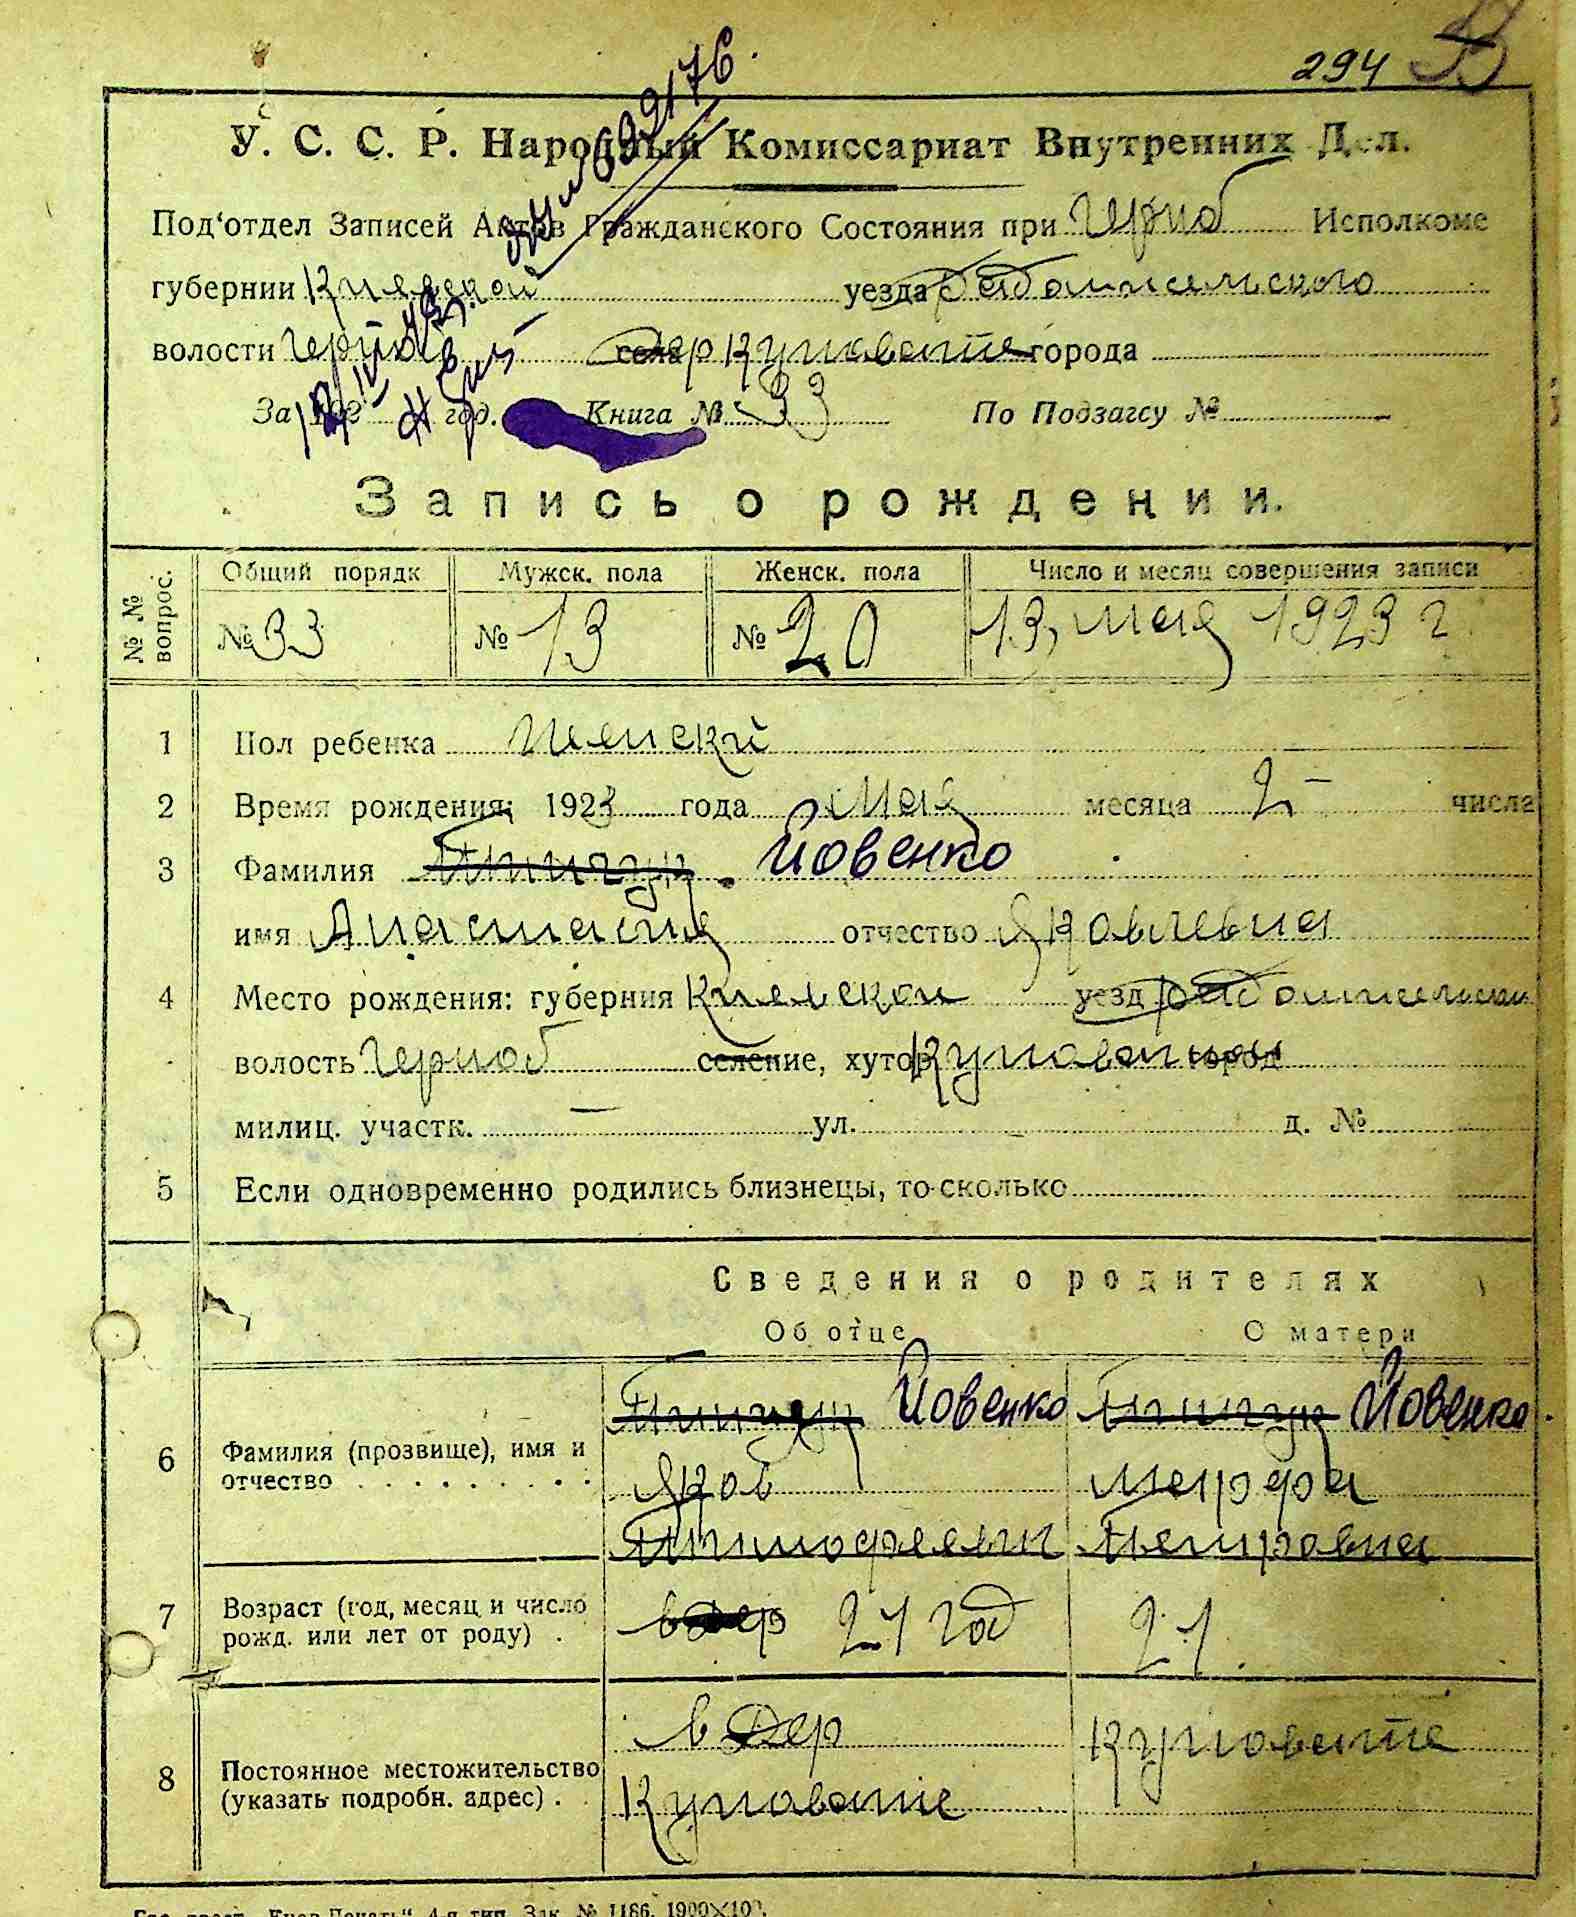 294
У. С. С. Р. Народный Комиссариат Внутренних Дел.
Под‘отдел Записей Актов Гражданского Состояния при Черноб Исполкоме
губернии Киевской уезда Радомысельского
волости Черноб села дер Куповате города
За 192 год. Книга № 33 По Подзагсу №
Запись о рождении.
№ № вопрос. Общий порядк Мужск. пола Женск. пола Число и месяц совершения записи
№ 33 № 13 № 20 13, мая 1923 г
1 Пол ребенка Женский
2 Время рождения: 1923 года Мая месяца 2 – числа
3 Фамилия Йовенко
имя Анастасия отчество Яковлевна
4 Место рождения: губерния Киевской уезд
волость Черноб селение, хутор город
милиц. участк. – ул. – д. №
5 Если одновременно родились близнецы, то сколько
Сведения о родителях
Об отце О матери
Йовенко Йовенко.
6 Фамилия (прозвище), имя и отчество Яков Марфа
Тимофеевич Петровна
7 Возраст (год, месяц и число рожд. или лет от роду) . 21 год 21.
8 Постоянное местожительство (указать подробн. адрес) . в Дер Куповате
Куповате
4-я тип. Зак. № 1186. 1900×100.